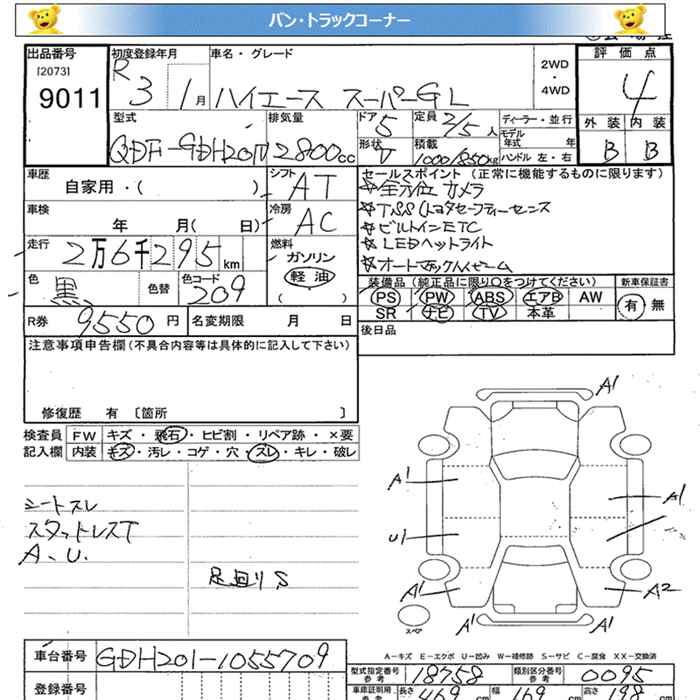 バン・トラックコーナー
出品番号 初度登録年月 車名・グレード 2WD・4WD 評価点
[2073]
9011 R3 1月 ハイエース スーパーGL 4
型式 排気量 ドア 5 定員 2/5人 ディーラー・並行 外装 内装
QDF-GDH201V 2800cc 形状 V 積載 1000/850kg モデル年式 年 B B
ハンドル 左・右
車歴 自家用・( ) シフト AT セールスポイント(正常に機能するものに限ります)
☆全方位カメラ
車検 年 月( 日) 冷房 AC ☆TSS(トヨタセーフティーセンス
☆ビルトインETC
走行 2万6千295km 燃料 ガソリン ☆LEDヘッドライト
軽油 ☆オートマチックハイビーム
( )
色 黒 色替 色コード 209 装備品(純正品に限り○をつけてください) 新車保証書
PS PW ABS エアB AW 有 無
SR ナビ TV 本革
R券 9550円 名変期限 月 日 後日品
注意事項申告欄(不具合内容等は具体的に記入して下さい)
修復歴 有 〔箇所 〕
検査員 FW キズ・飛石・ヒビ割・リペア跡・×要
記入欄 内装 キズ・汚レ・コゲ・穴・スレ・キレ・破レ
シートスレ
スタットレスT
A、U.
足回りS
A1
A1 A1
U1
A1 A2
スペア A1 A1
A-キズ E-エクボ U-凹み W-補修跡 S-サビ C-腐食 XX-交換済
車台番号 GDH201-1055709
型式指定番号 参考 18758 類別区分番号 参考 0095
登録番号 車庫証明用 参考 長さ 469 cm 幅 169 cm 高さ 198 cm